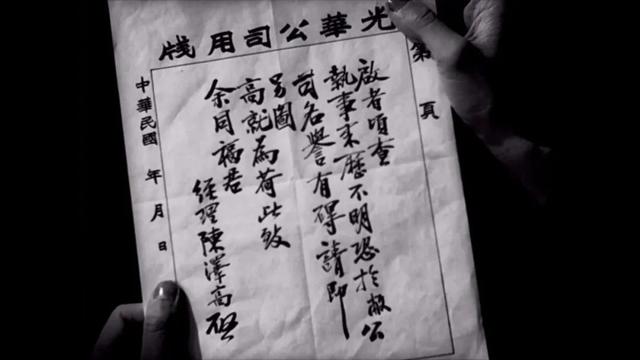 光華公司用牋
第 頁
啟者頃查
執事来歷不明恐於敝公
司名譽有碍請即
另圖
高就為荷此致
余同福君
經理陳澤高啟
中華民國 年 月 日